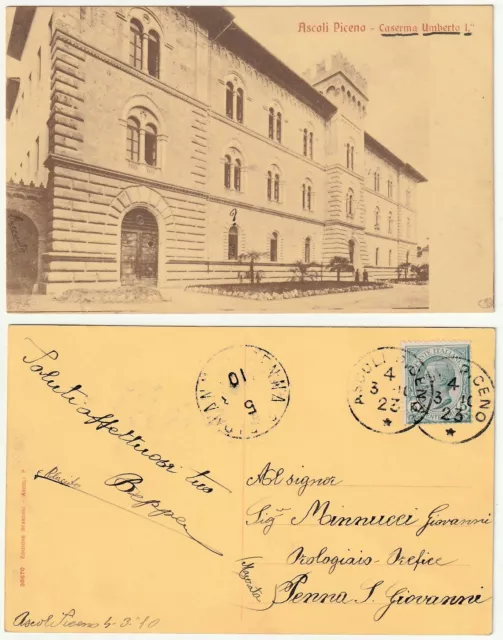 Ascoli Piceno - Caserma Umberto I.°
Saluti affettuosi tuo
Beppe
ASCOLI PICENO
4
3 - 10
23
ASCOLI PICENO
4
3 - 10
23
PENNA
10
Al signor
Sig.r Minnucci Giovanni
Orologiaio - Orefice
Penna S. Giovanni
(Macerata
Ascoli Piceno 4-3-10